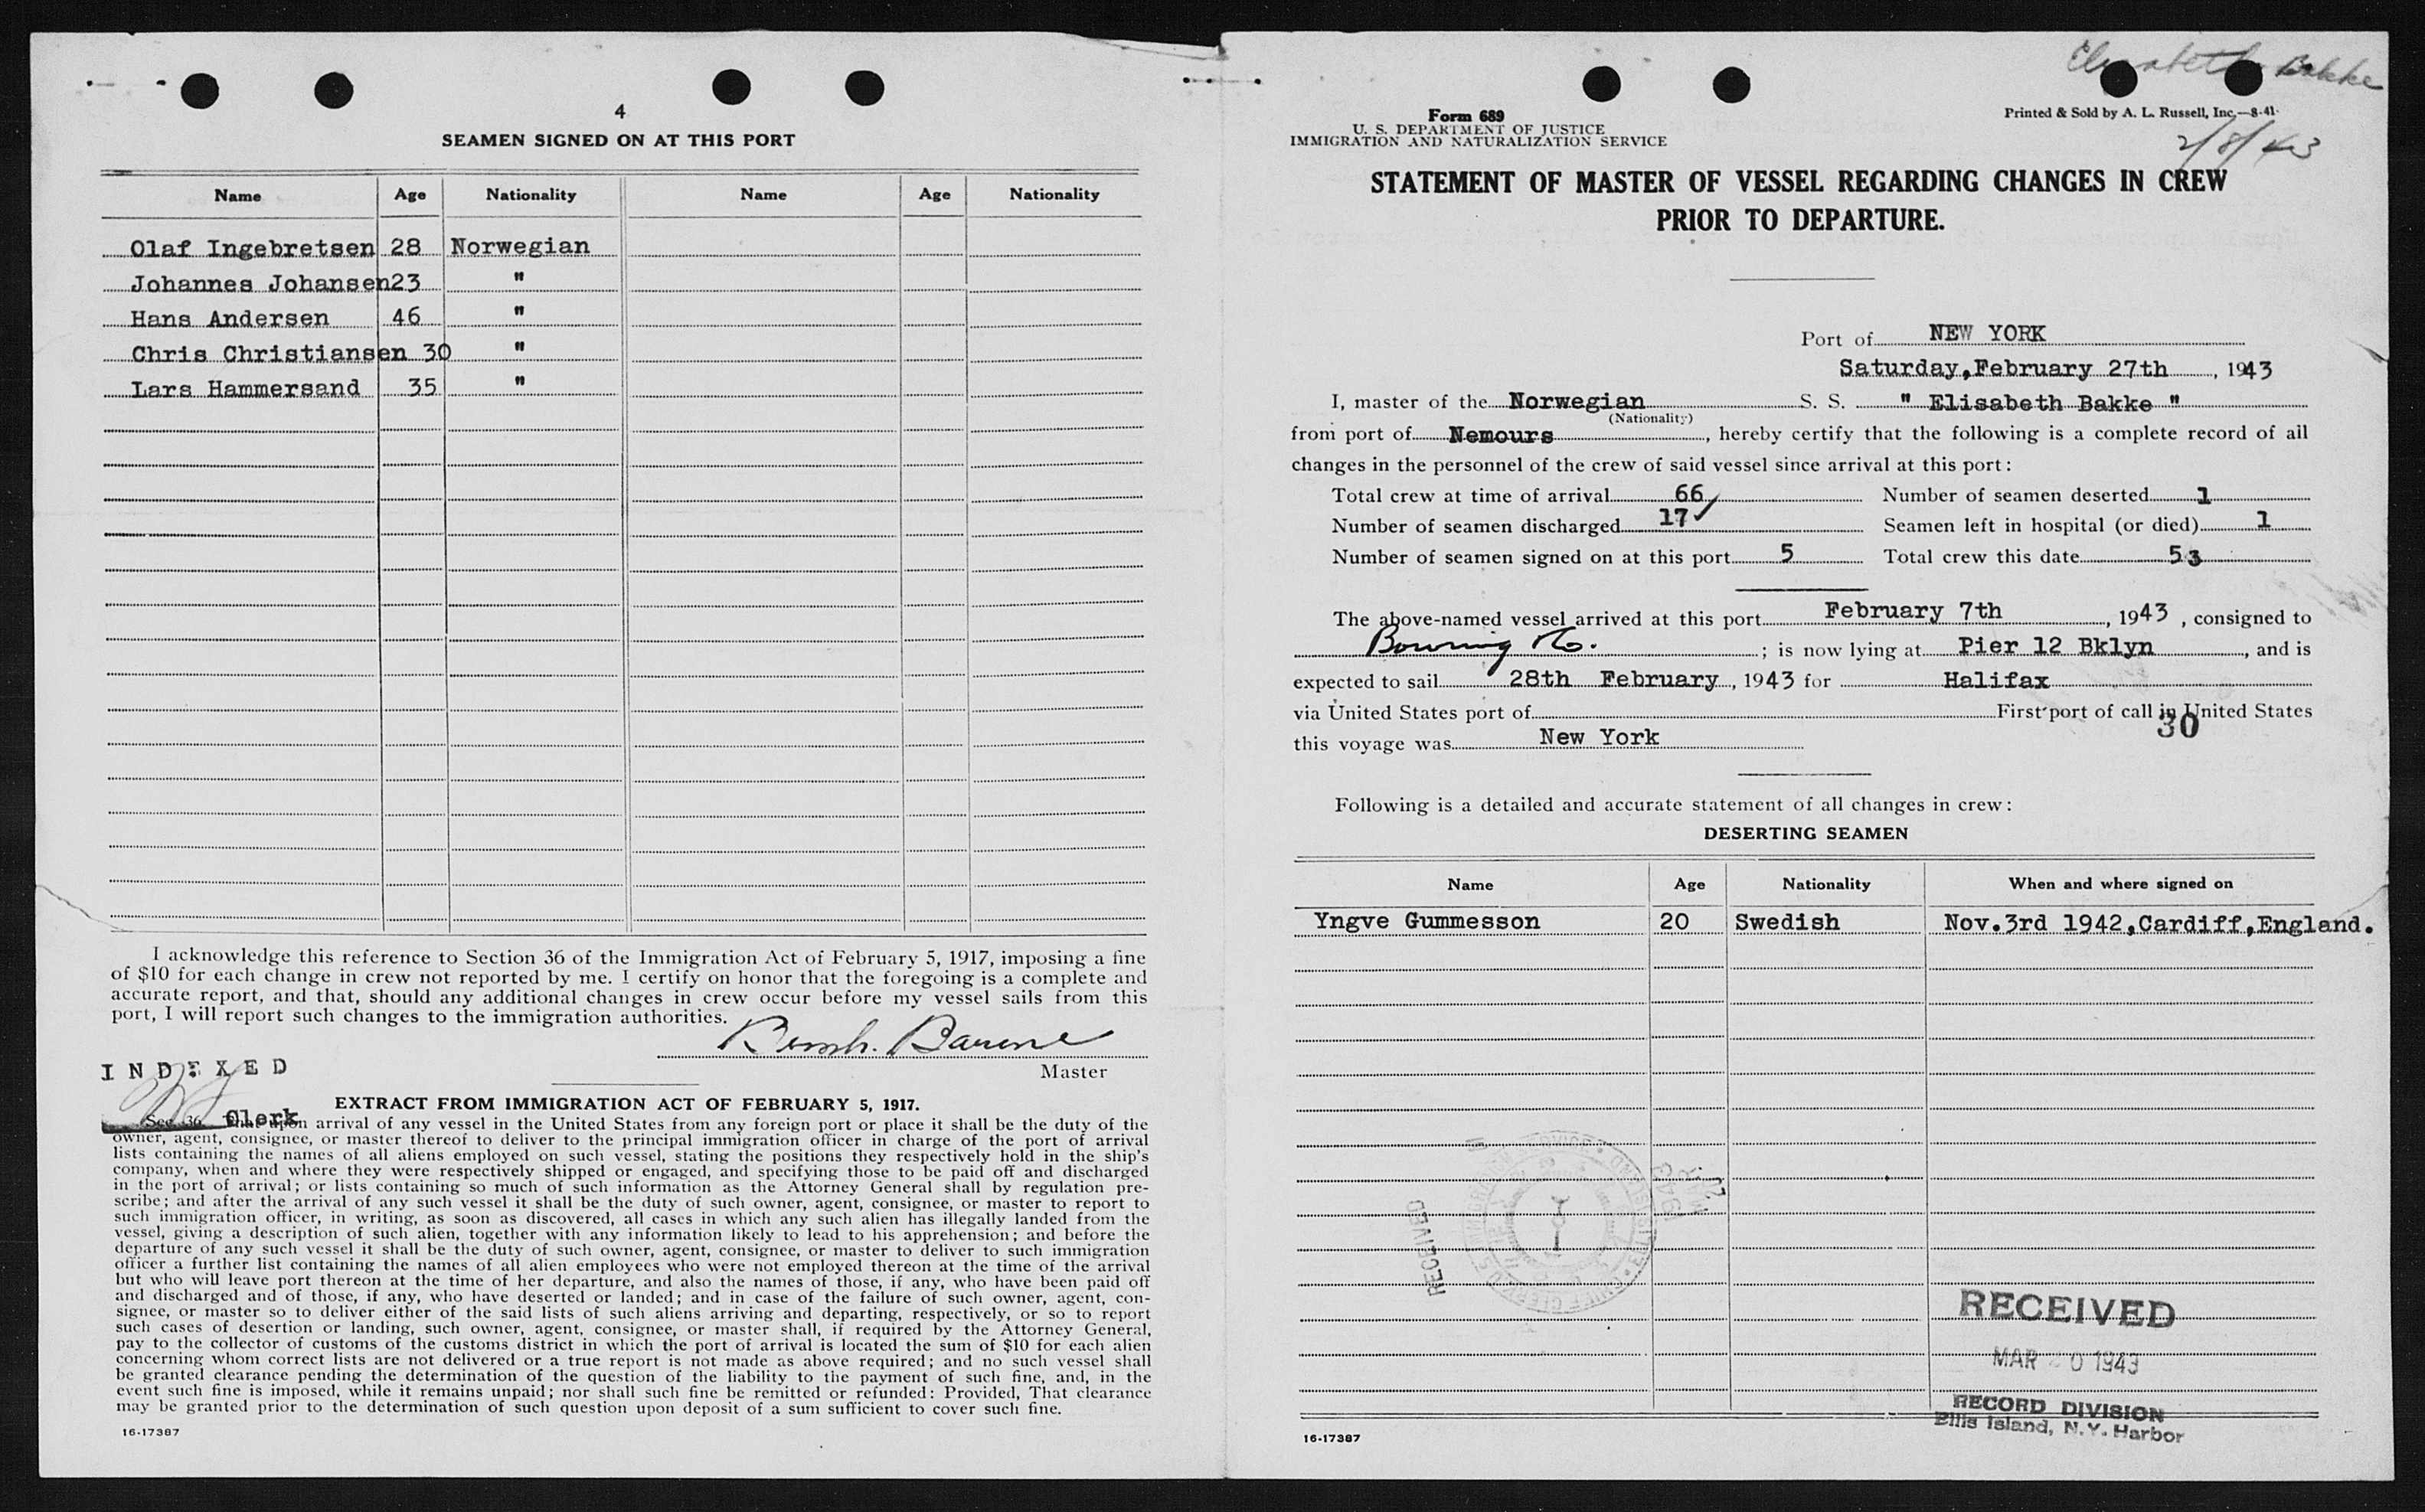 4
SEAMEN SIGNED ON AT THIS PORT
Name Age Nationality Name Age Nationality
Olaf Ingebretsen 28 Norwegian
Johannes Johansen 23 "
Hans Andersen 46 "
Chris Christiansen 30 "
Lars Hammersand 35 "
I acknowledge this reference to Section 36 of the Immigration Act of February 5, 1917, imposing a fine
of $10 for each change in crew not reported by me. I certify on honor that the foregoing is a complete and
accurate report, and that, should any additional changes in crew occur before my vessel sails from this
port, I will report such changes to the immigration authorities.
Master
INDEXED
Clerk
EXTRACT FROM IMMIGRATION ACT OF FEBRUARY 5, 1917.
Sec. 36. That upon arrival of any vessel in the United States from any foreign port or place it shall be the duty of the
owner, agent, consignee, or master thereof to deliver to the principal immigration officer in charge of the port of arrival
lists containing the names of all aliens employed on such vessel, stating the positions they respectively hold in the ship's
company, when and where they were respectively shipped or engaged, and specifying those to be paid off and discharged
in the port of arrival; or lists containing so much of such information as the Attorney General shall by regulation pre-
scribe; and after the arrival of any such vessel it shall be the duty of such owner, agent, consignee, or master to report to
such immigration officer, in writing, as soon as discovered, all cases in which any such alien has illegally landed from the
vessel, giving a description of such alien, together with any information likely to lead to his apprehension; and before the
departure of any such vessel it shall be the duty of such owner, agent, consignee, or master to deliver to such immigration
officer a further list containing the names of all alien employees who were not employed thereon at the time of the arrival
but who will leave port thereon at the time of her departure, and also the names of those, if any, who have been paid off
and discharged and of those, if any, who have deserted or landed; and in case of the failure of such owner, agent, con-
signee, or master so to deliver either of the said lists of such aliens arriving and departing, respectively, or so to report
such cases of desertion or landing, such owner, agent, consignee, or master shall, if required by the Attorney General,
pay to the collector of customs of the customs district in which the port of arrival is located the sum of $10 for each alien
concerning whom correct lists are not delivered or a true report is not made as above required; and no such vessel shall
be granted clearance pending the determination of the question of the liability to the payment of such fine, and, in the
event such fine is imposed, while it remains unpaid; nor shall such fine be remitted or refunded: Provided, That clearance
may be granted prior to the determination of such question upon deposit of a sum sufficient to cover such fine.
16-17387
Elisabeth Bakke
Form 689
U. S. DEPARTMENT OF JUSTICE
IMMIGRATION AND NATURALIZATION SERVICE
Printed & Sold by A. L. Russell, Inc.—8-41
2/8/43
STATEMENT OF MASTER OF VESSEL REGARDING CHANGES IN CREW
PRIOR TO DEPARTURE.
Port of NEW YORK
Saturday, February 27th, 1943
I, master of the Norwegian S. S. " Elisabeth Bakke "
(Nationality)
from port of Nemours, hereby certify that the following is a complete record of all
changes in the personnel of the crew of said vessel since arrival at this port:
Total crew at time of arrival 66 Number of seamen deserted 1
Number of seamen discharged 17 Seamen left in hospital (or died) 1
Number of seamen signed on at this port 5 Total crew this date 53
The above-named vessel arrived at this port February 7th, 1943, consigned to
Bowring Co.; is now lying at Pier 12 Bklyn, and is
expected to sail 28th February, 1943 for Halifax
via United States port of First port of call in United States
30
this voyage was New York
Following is a detailed and accurate statement of all changes in crew:
DESERTING SEAMEN
Name Age Nationality When and where signed on
Yngve Gummesson 20 Swedish Nov.3rd 1942,Cardiff,England.
RECEIVED
1943
RECEIVED
MAR 0 1943
RECORD DIVISION
Ellis Island, N.Y. Harbor
16-17387